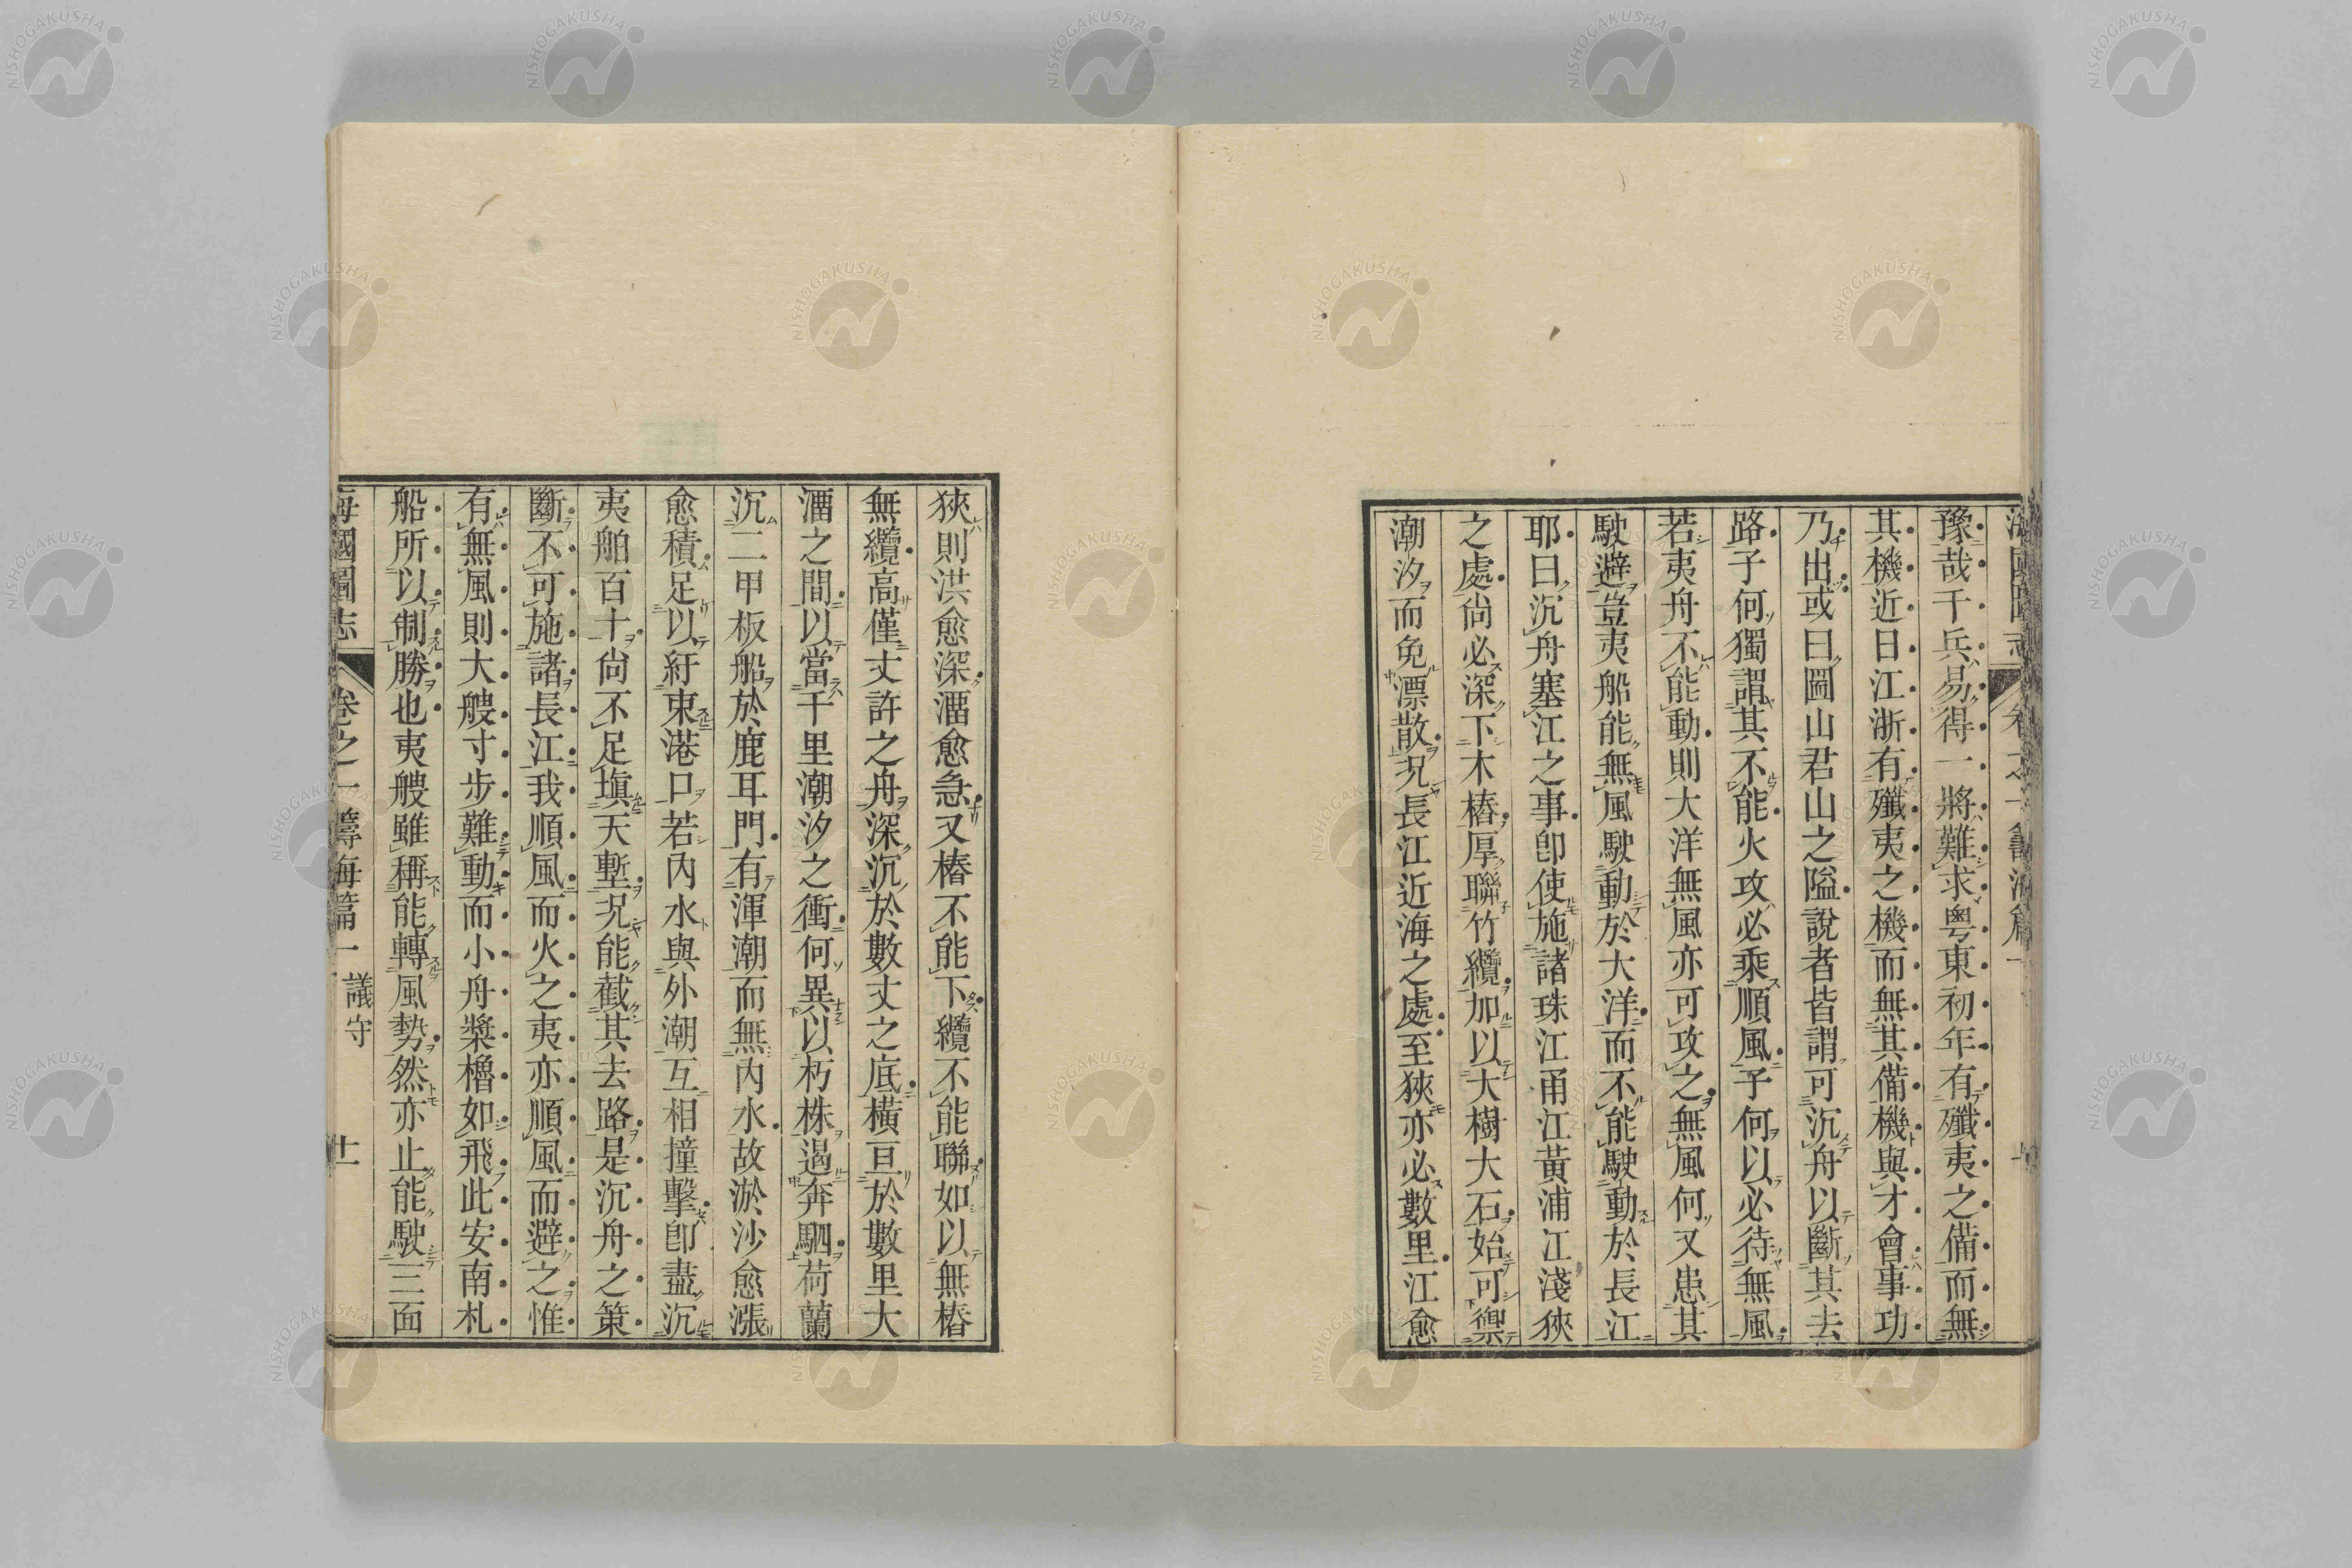 豫哉千兵易得一將難求粤東初年有殲夷之備而無
其機近日江浙有殲夷之機而無其備機與才會事功
乃出或曰圖山君山之隘說者皆謂可沉舟以斷其去
路子何獨謂其不能火攻必乘順風子何以必待無風
若夷舟不能動則大洋無風亦可攻之無風何又患其
駛避豈夷船能無風駛動於大洋而不能駛動於長江
耶曰沉舟塞江之事卽使施諸珠江甬江黃浦江淺狹
之處尙必深下木樁厚聯竹纜加以大樹大石始可禦
潮汐而免漂散況長江近海之處至狹亦必數里江愈
狹則洪愈深溜愈急又樁不能下纜不能聯如以無樁
無纜高僅丈許之舟深沉於數丈之底橫亘於數里大
溜之間以當千里潮汐之衝何異以朽株遏奔駟荷蘭
沉二甲板船於鹿耳門有渾潮而無內水故淤沙愈漲
愈積足以紆束港口若內水與外潮互相撞擊卽盡沉
夷舶百十尙不足塡天塹況能截其去路是沉舟之策
斷不可施諸長江我順風而火之夷亦順風而避之惟
有無風則大艘寸步難動而小舟槳櫓如飛此安南札
船所以制勝也夷艘雖稱能轉風勢然亦止能駛三面
海國圖志 卷之一 籌海篇一 議守 十一
NISHOGAKUSHA